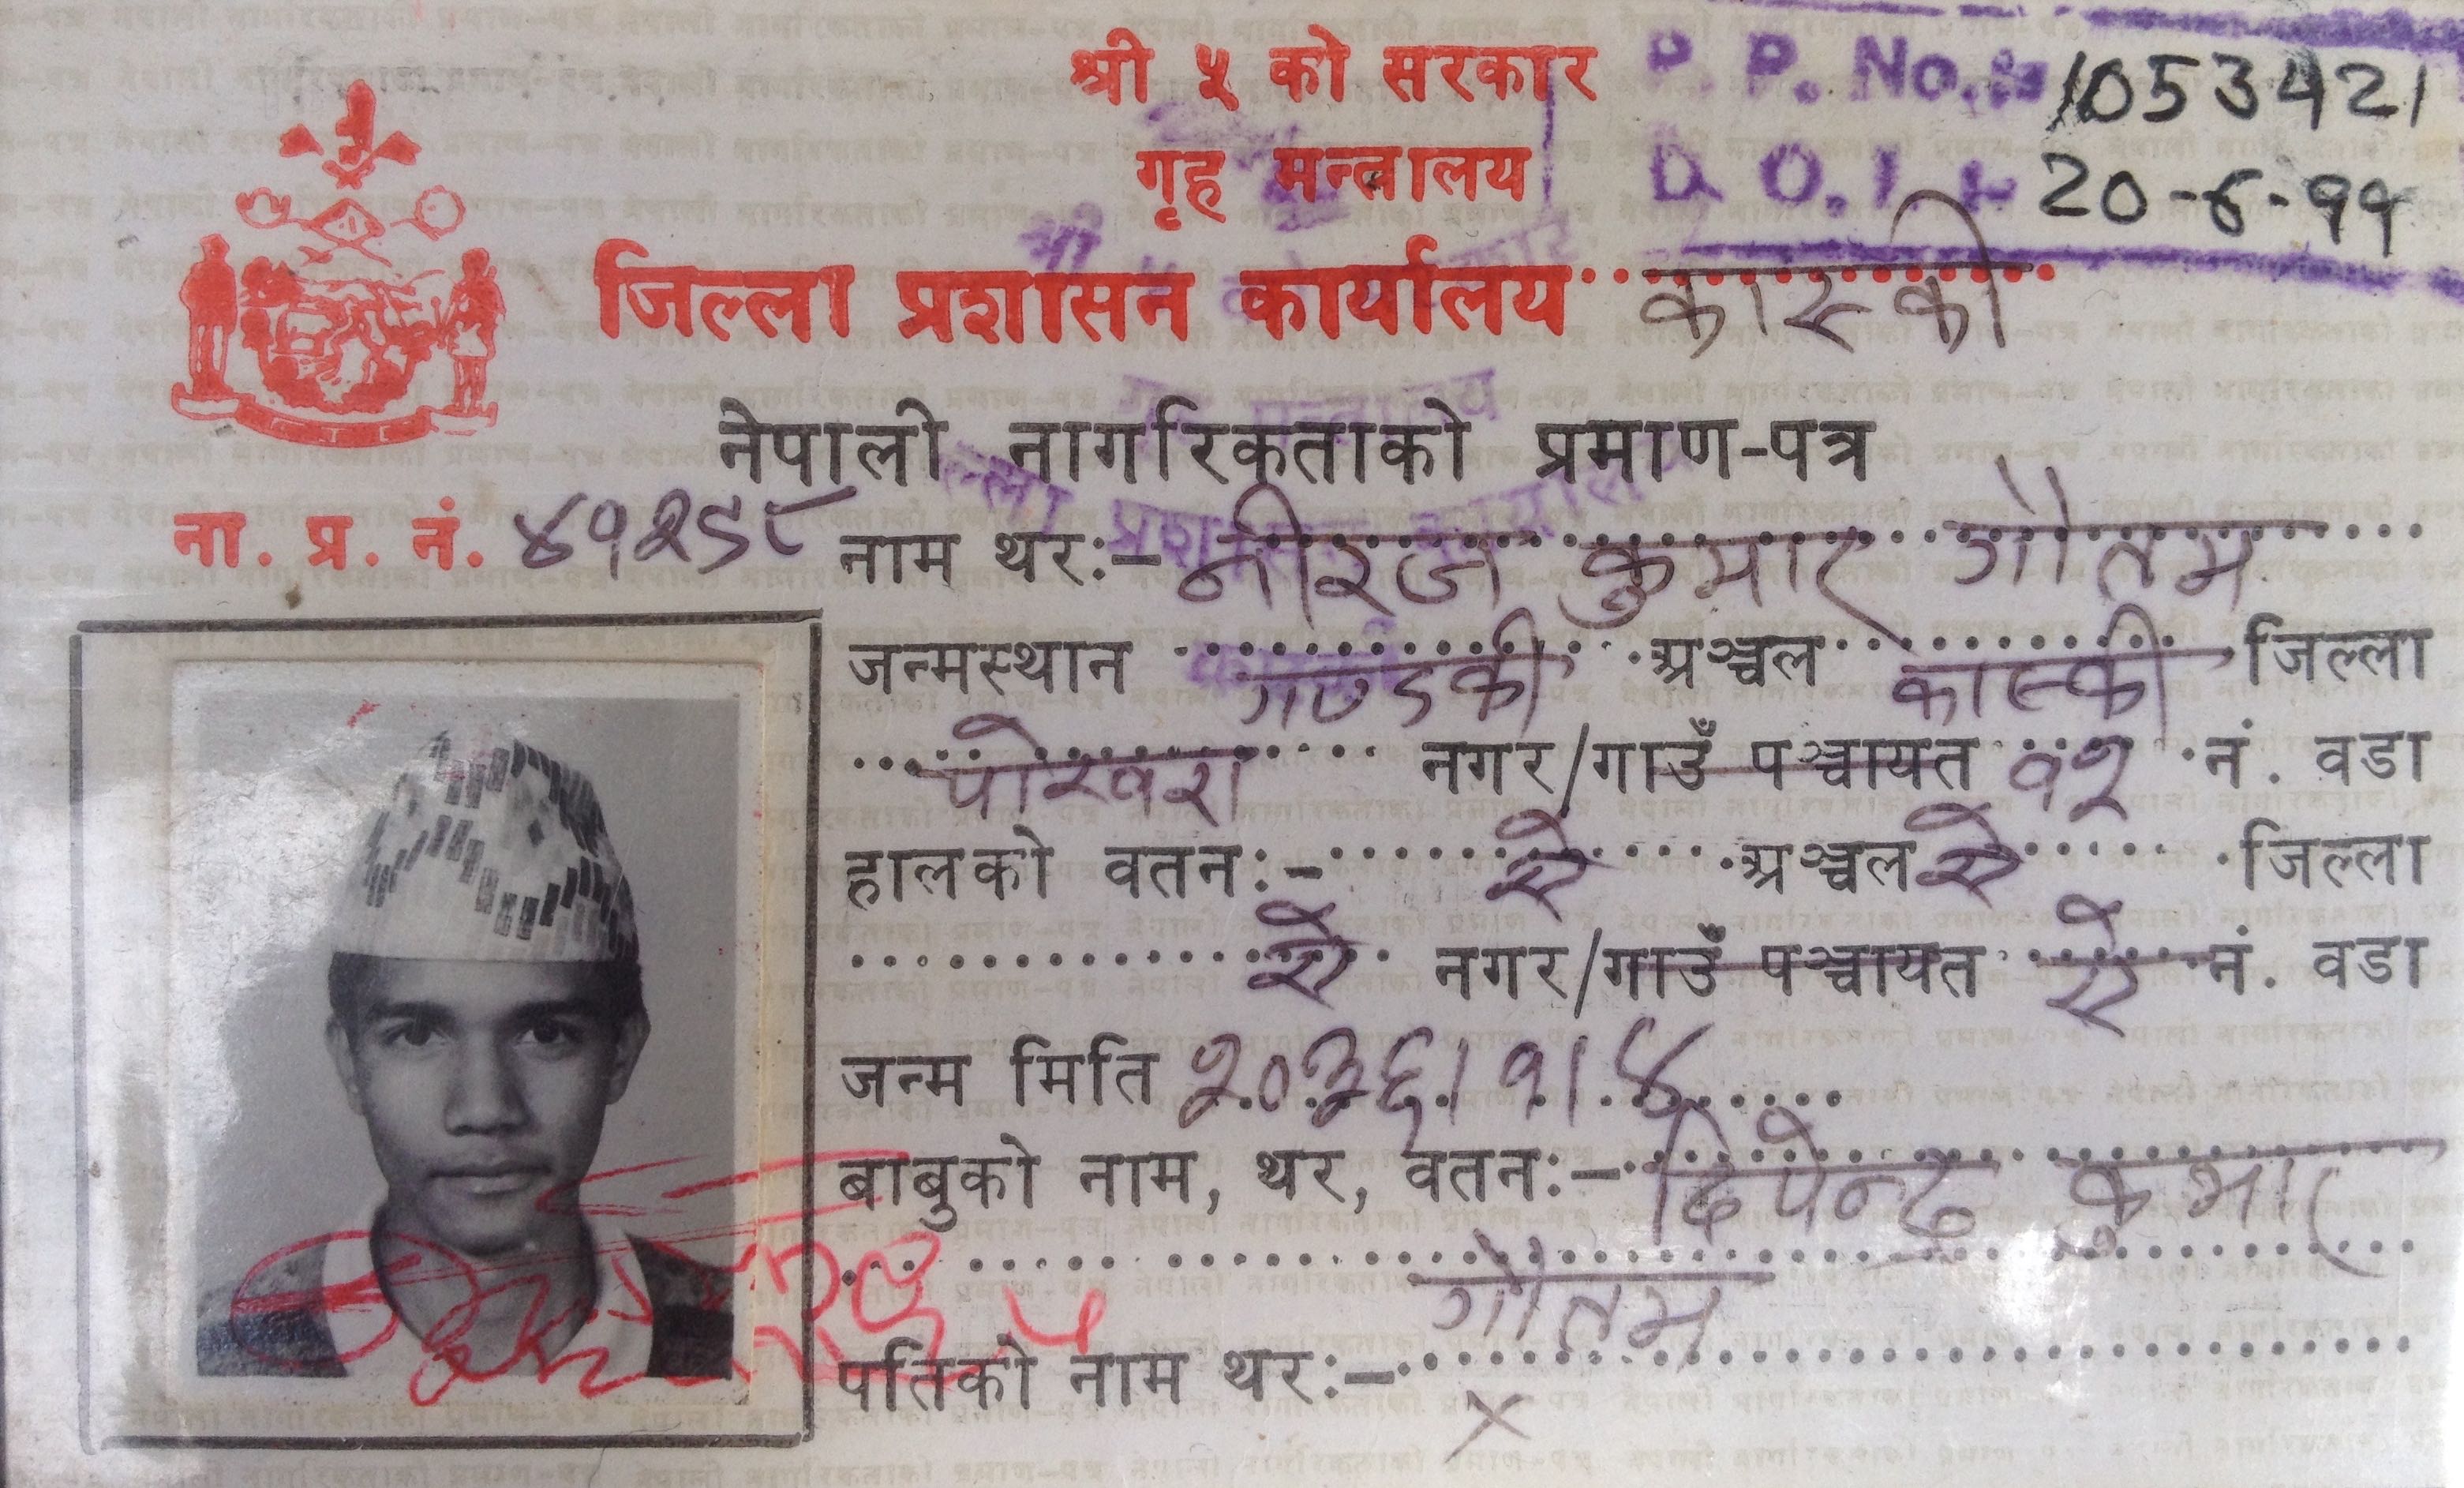 श्री ५ को सरकार
गृह मन्त्रालय
P. P. No.: 1053421
D.O.I. 20-6-99
जिल्ला प्रशासन कार्यालय कास्की
नेपाली नागरिकताको प्रमाण-पत्र
ना. प्र. नं.
नाम थर:- नीरज कुमार गौतम
जन्मस्थान गण्डकी अञ्चल कास्की जिल्ला
पोखरा नगर/गाउँ पञ्चायत नं. वडा
हालको वतन:- ऐ अञ्चल ऐ जिल्ला
ऐ नगर/गाउँ पञ्चायत ऐ नं. वडा
जन्म मिति २०३६।१।४
बाबुको नाम, थर, वतन:- दिपेन्द्र कुमार
गौतम
पतिको नाम थर:- ×